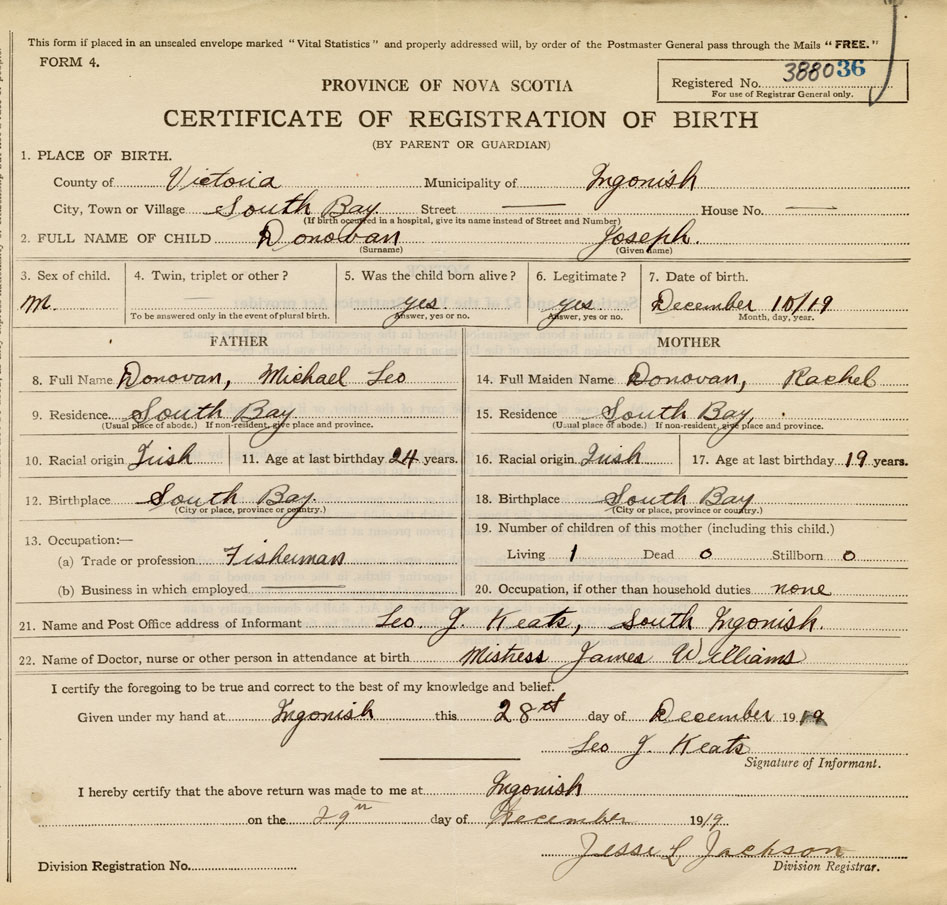 This form if placed in an unsealed envelope marked "Vital Statistics" and properly addressed will, by order of the Postmaster General pass through the Mails "FREE."
FORM 4.
Registered No. 388036
For use of Registrar General only.
PROVINCE OF NOVA SCOTIA
CERTIFICATE OF REGISTRATION OF BIRTH
(BY PARENT OR GUARDIAN)
1. PLACE OF BIRTH.
County of Victoria Municipality of Ingonish
City, Town or Village South Bay Street — House No. —
(If birth occurred in a hospital, give its name instead of Street and Number)
2. FULL NAME OF CHILD Donovan Joseph.
(Surname) (Given name)
3. Sex of child. 4. Twin, triplet or other? 5. Was the child born alive? 6. Legitimate? 7. Date of birth.
M. — yes. yes. December 10/19
To be answered only in the event of plural birth. Answer, yes or no. Answer, yes or no. Month, day, year.
FATHER MOTHER
8. Full Name Donovan, Michael Leo 14. Full Maiden Name Donovan, Rachel
9. Residence South Bay 15. Residence South Bay,
(Usual place of abode.) If non-resident, give place and province. (Usual place of abode.) If non-resident, give place and province.
10. Racial origin Irish 11. Age at last birthday 24 years. 16. Racial origin Irish 17. Age at last birthday 19 years.
12. Birthplace South Bay. 18. Birthplace South Bay
(City or place, province or country.) (City or place, province or country.)
13. Occupation:— 19. Number of children of this mother (including this child.)
(a) Trade or profession Fisherman Living 1 Dead 0 Stillborn 0
(b) Business in which employed — 20. Occupation, if other than household duties none
21. Name and Post Office address of Informant Leo J. Keats, South Ingonish.
22. Name of Doctor, nurse or other person in attendance at birth Mistress James Williams
I certify the foregoing to be true and correct to the best of my knowledge and belief.
Given under my hand at Ingonish this 28th day of December 1919
Leo J. Keats
Signature of Informant.
I hereby certify that the above return was made to me at Ingonish
on the 29th day of December 1919.
Jesse L Jackson
Division Registration No. Division Registrar.